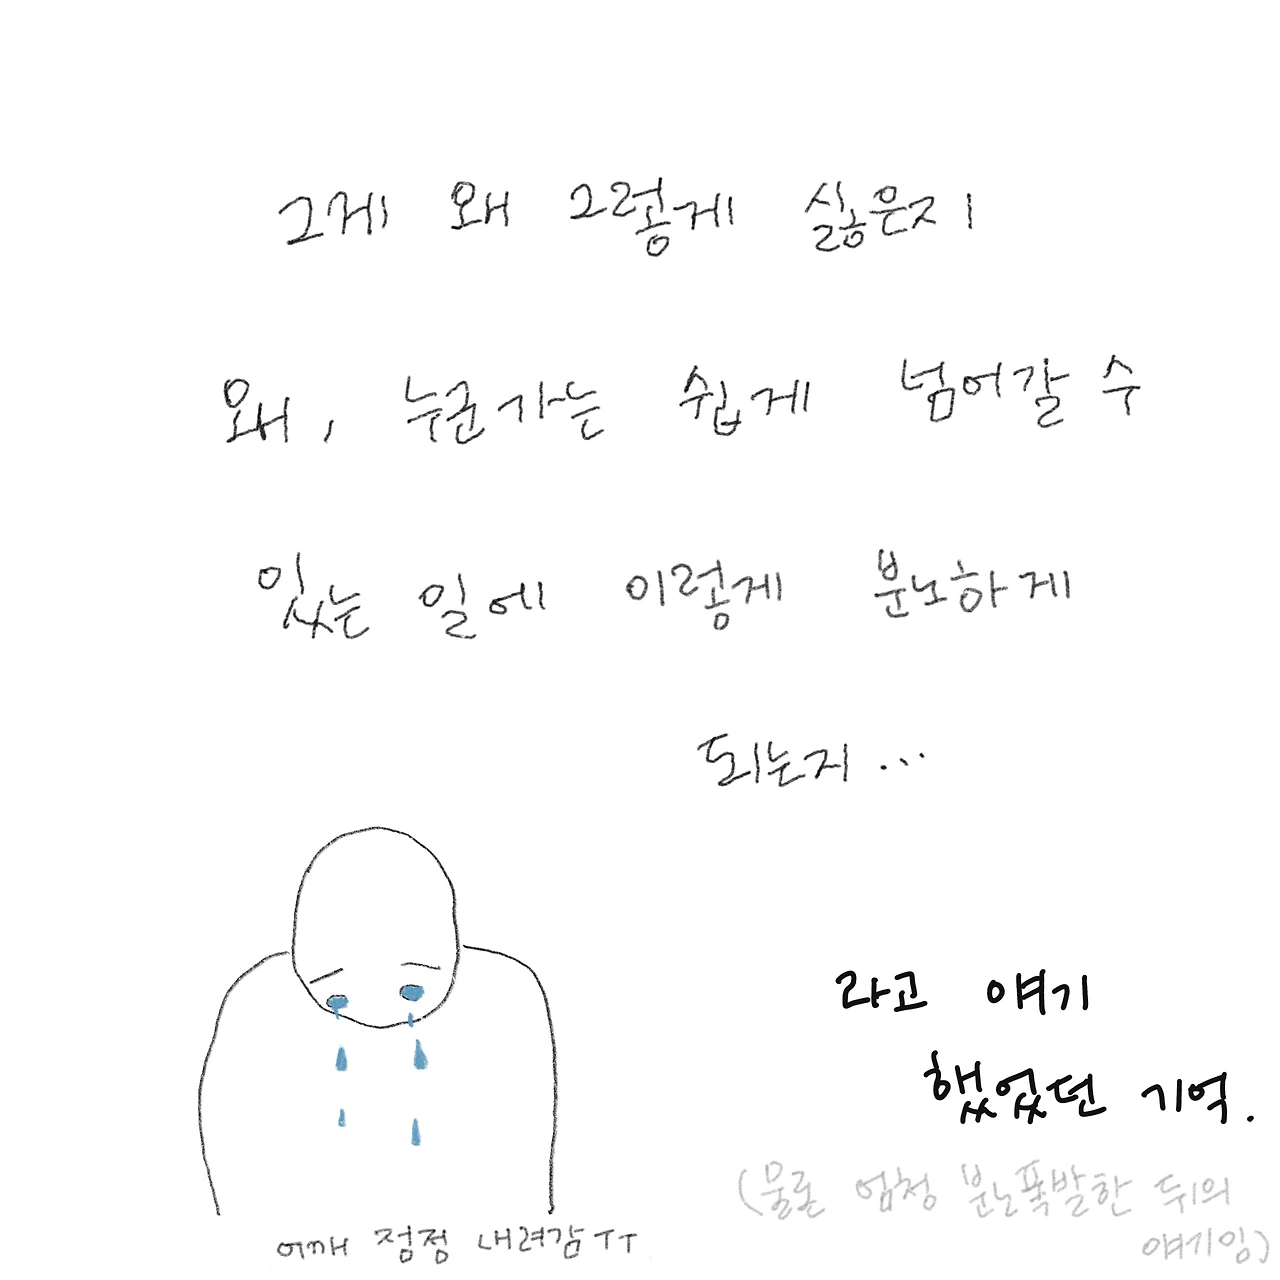 그게 왜 그렇게 싫은지
왜, 누군가는 쉽게 넘어갈 수
있는 일에 이렇게 분노하게
되는지...
라고 얘기
했었던 기억.
(물론 엄청 분노폭발한 뒤의
얘기임)
어깨 점점 내려감ㅜㅜ